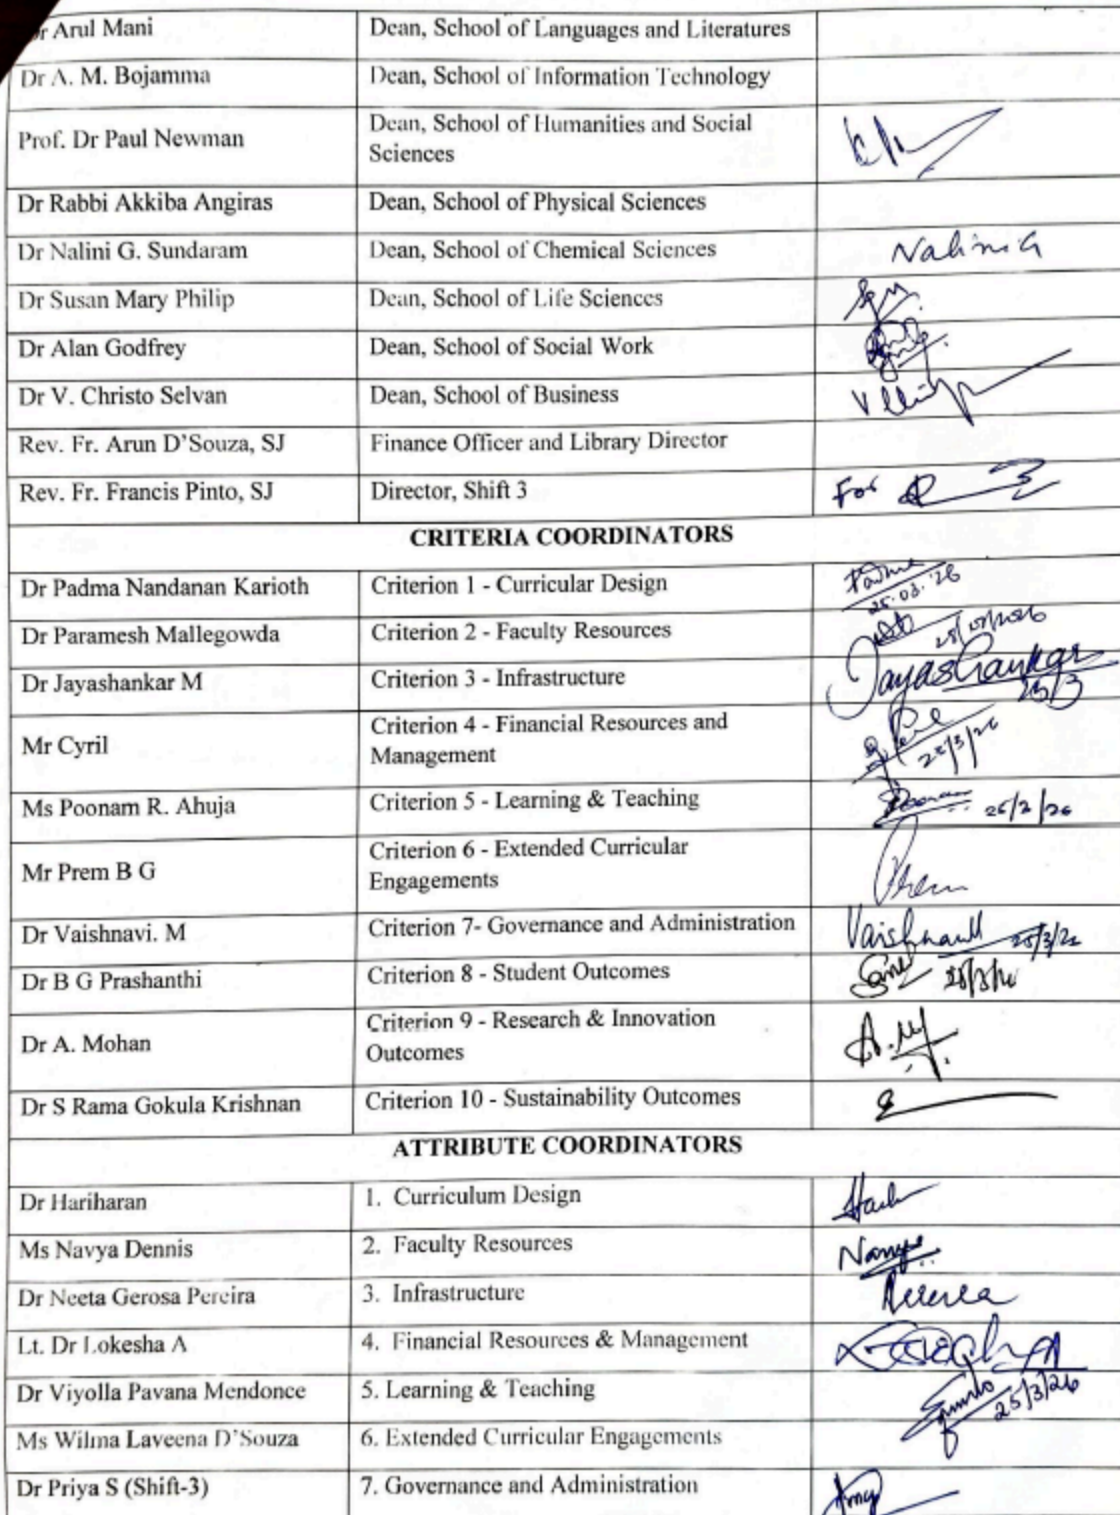 Dr Arul Mani Dean, School of Languages and Literatures
Dr A. M. Bojamma Dean, School of Information Technology
Prof. Dr Paul Newman Dean, School of Humanities and Social
Sciences
Dr Rabbi Akkiba Angiras Dean, School of Physical Sciences
Dr Nalini G. Sundaram Dean, School of Chemical Sciences Nalini G
Dr Susan Mary Philip Dean, School of Life Sciences
Dr Alan Godfrey Dean, School of Social Work
Dr V. Christo Selvan Dean, School of Business
Rev. Fr. Arun D'Souza, SJ Finance Officer and Library Director
Rev. Fr. Francis Pinto, SJ Director, Shift 3 For
CRITERIA COORDINATORS
Dr Padma Nandanan Karioth Criterion 1 - Curricular Design Padma
25.03.'26
Dr Paramesh Mallegowda Criterion 2 - Faculty Resources
Dr Jayashankar M Criterion 3 - Infrastructure Jayashankar
25/3
Mr Cyril Criterion 4 - Financial Resources and
Management
Ms Poonam R. Ahuja Criterion 5 - Learning & Teaching Poonam
Mr Prem B G Criterion 6 - Extended Curricular
Engagements Prem
Dr Vaishnavi. M Criterion 7- Governance and Administration Vaishnavi
Dr B G Prashanthi Criterion 8 - Student Outcomes
Dr A. Mohan Criterion 9 - Research & Innovation
Outcomes
Dr S Rama Gokula Krishnan Criterion 10 - Sustainability Outcomes
ATTRIBUTE COORDINATORS
Dr Hariharan 1. Curriculum Design
Ms Navya Dennis 2. Faculty Resources
Dr Neeta Gerosa Pereira 3. Infrastructure
Lt. Dr Lokesha A 4. Financial Resources & Management
Dr Viyolla Pavana Mendonce 5. Learning & Teaching 25/3/26
Ms Wilma Laveena D'Souza 6. Extended Curricular Engagements
Dr Priya S (Shift-3) 7. Governance and Administration